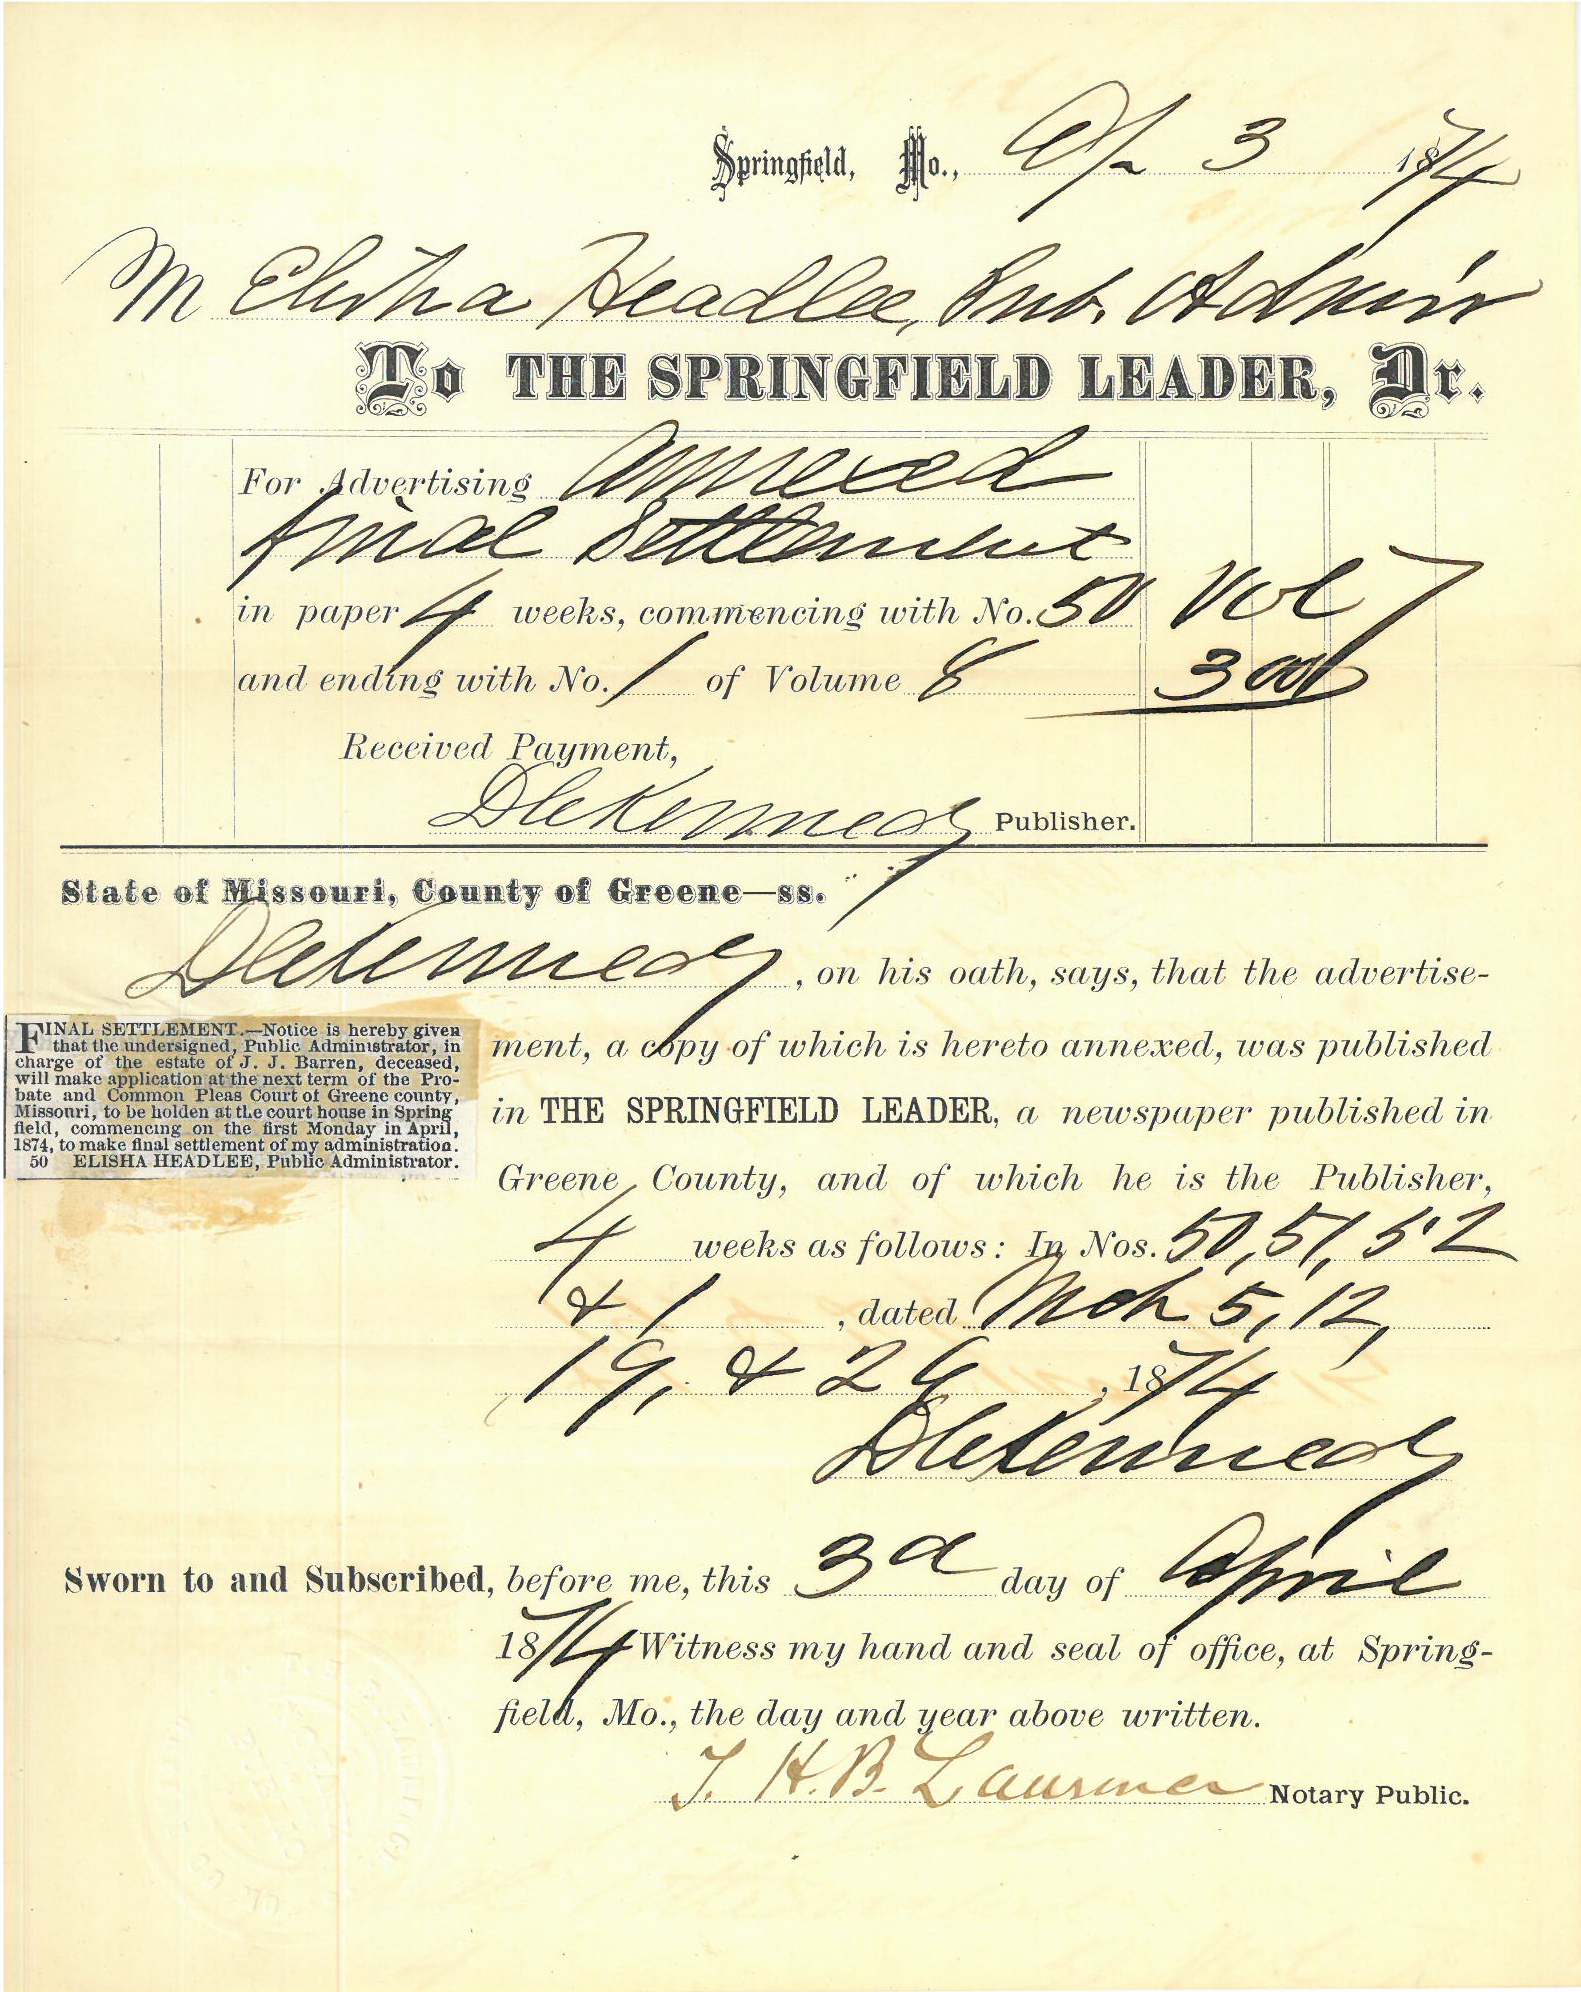 Springfield, Mo., Ap 3 1874
M Elisha Headlee, Pub. Admin'r
To THE SPRINGFIELD LEADER, Dr.
For Advertising annexed
final Settlement
in paper 4 weeks, commencing with No. 50 Vol 7
and ending with No. 1 of Volume 8 3 00
Received Payment,
D C Kennedy Publisher.
State of Missouri, County of Greene—ss.
D C Kennedy, on his oath, says, that the advertise-
ment, a copy of which is hereto annexed, was published
in THE SPRINGFIELD LEADER, a newspaper published in
Greene County, and of which he is the Publisher,
4 weeks as follows: In Nos. 50, 51, 52
& 1, dated Mch 5, 12,
19, & 26, 1874
D C Kennedy
FINAL SETTLEMENT.—Notice is hereby given
that the undersigned, Public Administrator, in
charge of the estate of J. J. Barren, deceased,
will make application at the next term of the Pro-
bate and Common Pleas Court of Greene county,
Missouri, to be holden at the court house in Spring
field, commencing on the first Monday in April,
1874, to make final settlement of my administration.
50 ELISHA HEADLEE, Public Administrator.
Sworn to and Subscribed, before me, this 3d day of April
1874 Witness my hand and seal of office, at Spring-
field, Mo., the day and year above written.
H. B. Notary Public.